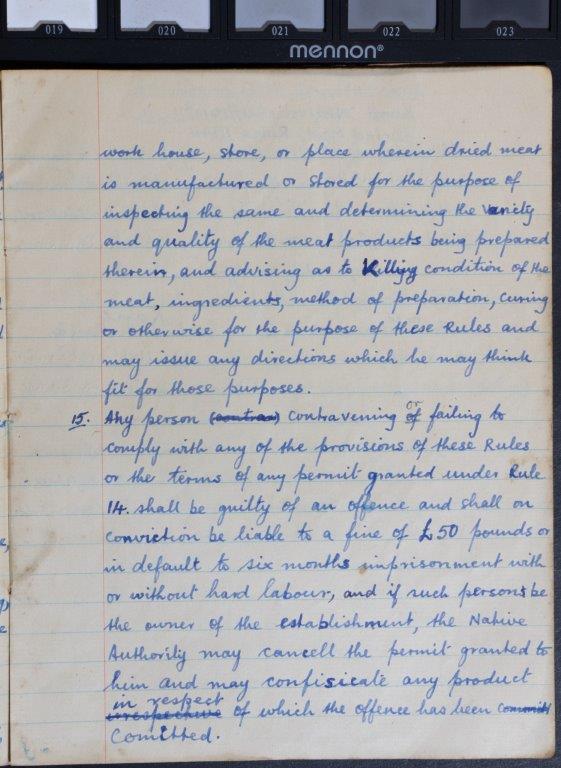 019 020 021 022 023
mennon®
work house, store, or place wherein dried meat
is manufactured or stored for the purpose of
inspecting the same and determining the variety
and quality of the meat products being prepared
therein, and advising as to Killing condition of the
meat, ingredients, method of preparation, curing
or otherwise for the purpose of these Rules and
may issue any directions which he may think
fit for those purposes.
15. Any person (contrav) contravening of or failing to
comply with any of the provisions of these Rules
or the terms of any permit granted under Rule
14. shall be guilty of an offence and shall on
conviction be liable to a fine of £50 pounds or
in default to six months imprisonment with
or without hard labour, and if such persons be
the owner of the establishment, the Native
Authority may cancell the permit granted to
him and may confisicate any product
in respect
irrespective of which the offence has been
Comitted.